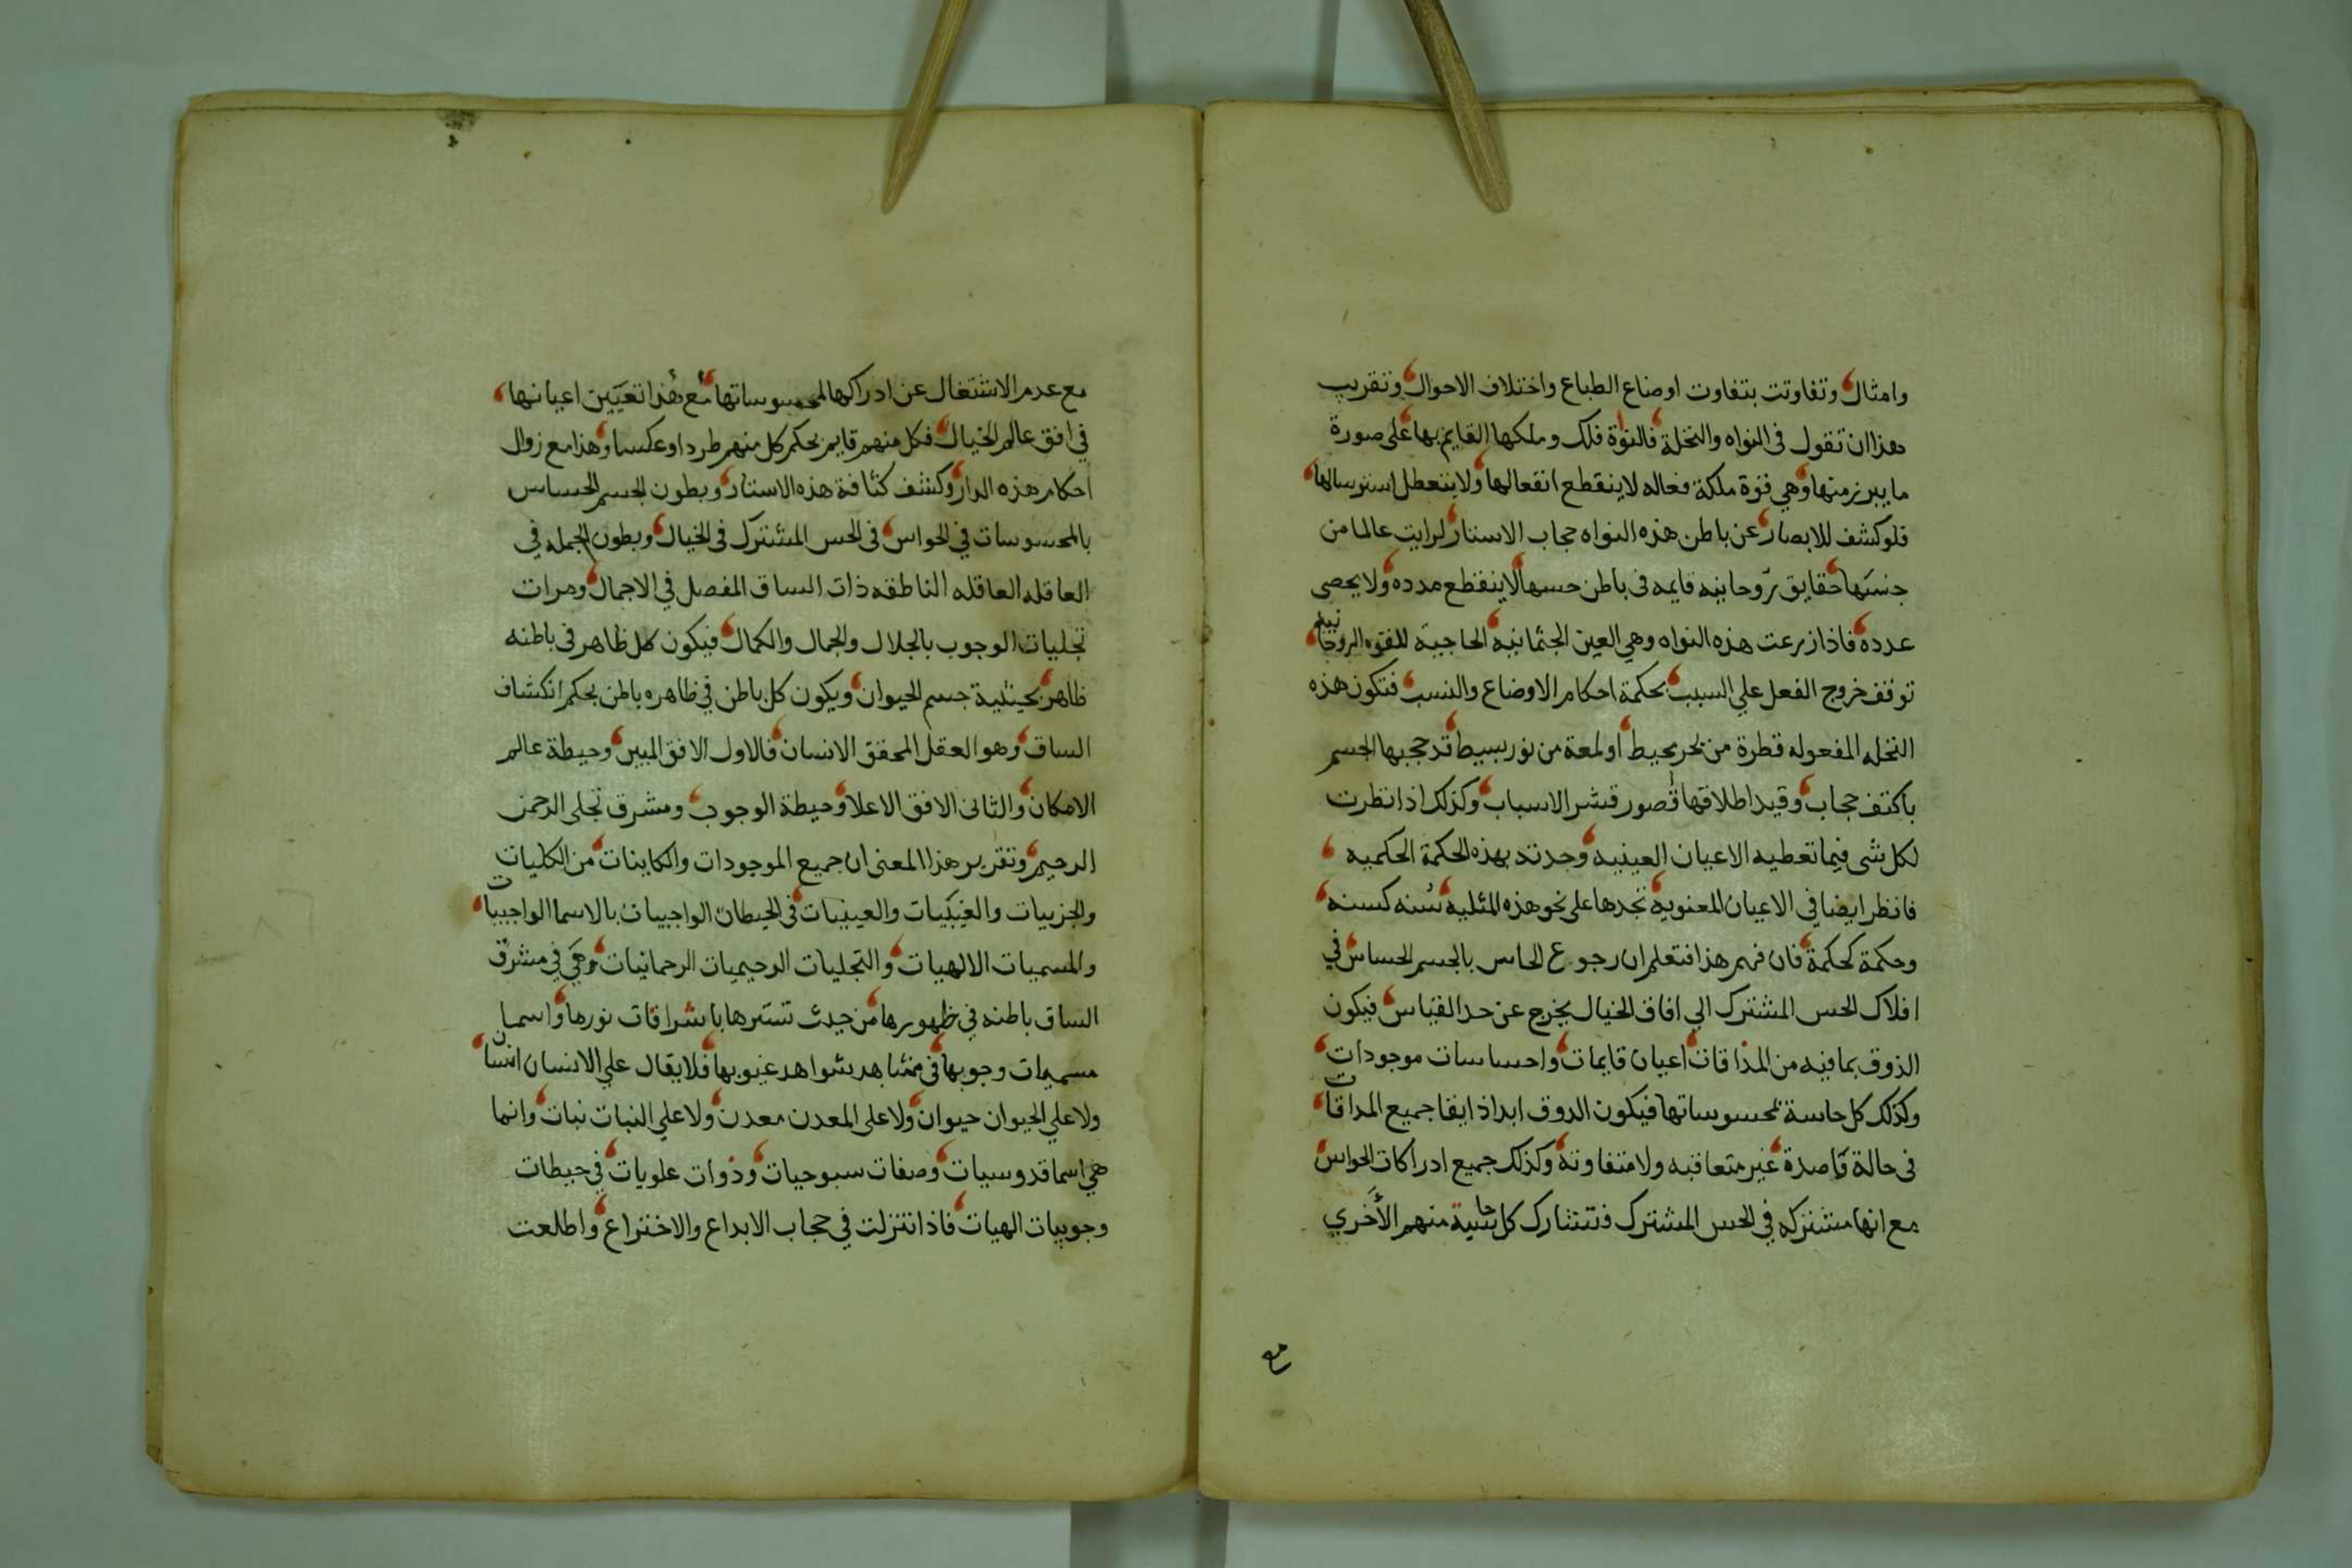 وامثال وتفاوتت بتفاوت اوضاع الطباع واختلاف الاحوال وتقريب
هذا ان تقول فى النواه والنخلة فالنواة فلك وملكها القايم بها على صورة
ما يبرز منها وهي قوة ملكة فعاله لاينقطع انفعالها ولايتعطل استرسالها
فلو كشف للابصار عن باطن هذه النواه حجاب الاستتار لرايت عالما من
جنسها حقايق روحانيه قايمه فى باطن حسها لاينقطع مدده ولا يحصى
عدده فاذا زرعت هذه النواه وهي العين الجثمانيه الحاجبة للقوه الروحانيه
توقف خروج الفعل علي السبب بحكمة احكام الاوضاع والنسب فتكون هذه
النخله المفعوله قطرة من بحر محيط او لمعة من نور بسيط قد حجبها الجسم
باكثف حجاب وقيد اطلاقها قصور قشر الاسباب وكذلك اذا نظرت
لكل شى فيما تعطيه الاعيان العينيه وجدته بهذه الحكمة الحكميه
فانظر ايضا في الاعيان المعنويه تجدها على نحو هذه المثليه سنه كسنه
وحكمة كحكمة فان فهم هذا فتعلم ان رجوع الحاس بالجسم الحساس في
افلاك الحس المشترك الي افاق الخيال يخرج عن حد القياس فيكون
الذوق بما فيه من المذاقات اعيان قايمات واحساسات موجودات
وكذلك كل حاسة بمحسوساتها فيكون الدوق ابدا ذايقا جميع المداقات
فى حالة قاصدة غير متعاقبه ولا متفاوته وكذلك جميع ادراكات الحواس
مع انها مشتركه في الحس المشترك فتشارك كل حاسية منهم الأخري
مع
مع عدم الاشتغال عن ادراكها لمحسوساتها مع هذا تعيين اعيانها
في افق عالم الخيال فكل منهم قايم بحكم كل منهم طردا وعكسا وهذا مع زوال
احكام هذه الدار وكشف كثافة هذه الاستار وبطون الجسم الحساس
بالمحسوسات في الحواس فى الحس المشترك فى الخيال وبطون الجمله في
العاقله العاقله الناطقه ذات الساق المفصل في الاجمال ومرات
تجليات الوجوب بالجلال والجمال والكمال فيكون كل ظاهر فى باطنه
ظاهر بحيثية جسم الحيوان ويكون كل باطن في ظاهره باطن بحكم انكشاف
الساق وهو العقل المحقق الانسان فالاول الافق المبين وحيطة عالم
الامكان والثانى الافق الاعلا وحيطة الوجوب ومشرق تجلى الرحمن
الرحيم وتقرير هذا المعنى ان جميع الموجودات والكاينات من الكليات
والجزييات والغيبيات والعينيات فى الحيطات الواجبيات بالاسما الواجبيات
والمسميات الالهيات والتجليات الرحيميات الرحمانيات وهي في مشرق
الساق باطنه في ظهورها من حيث تسترها باشراقات نورها واسما
مسميات وجوبها فى مشاهد شواهد غيوبها فلا يقال علي الانسان انسان
ولا علي الحيوان حيوان ولا على المعدن معدن ولا علي النبات نبات وانما
هي اسما قدوسيات وصفات سبوحيات وذوات علويات في حيطات
وجوبيات الهيات فاذا تنزلت في حجاب الابداع والاختراع واطلعت